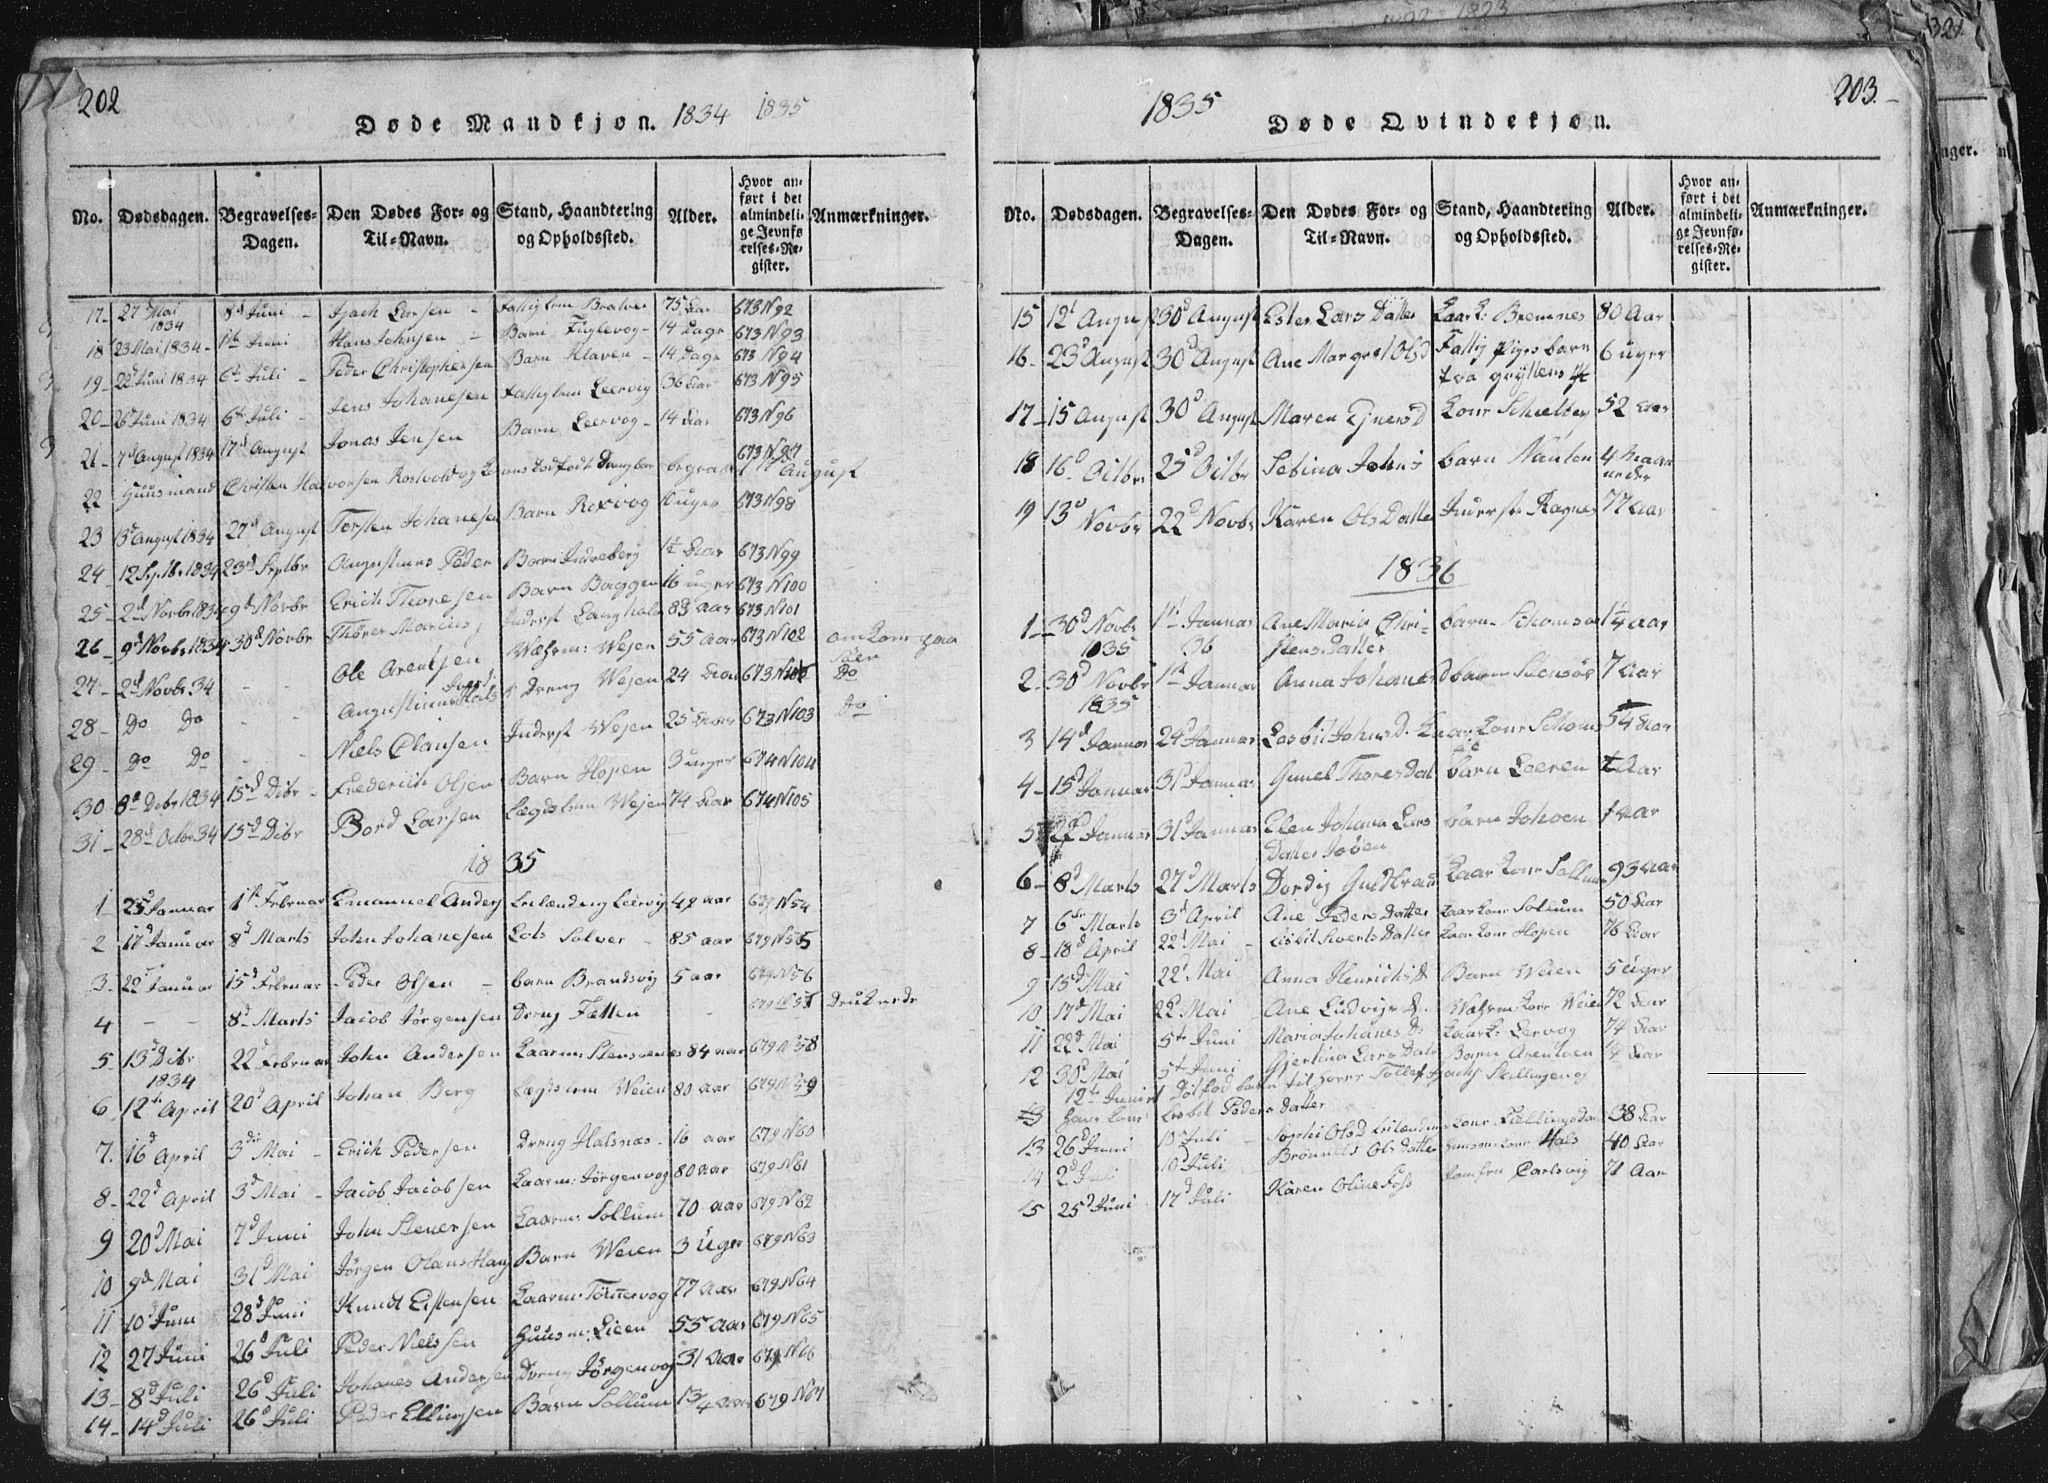 202
Døde Mandkjøn. 1834 1835
No. Dødsdagen. Begravelses-Dagen. Den Dødes For- og Til-Navn. Stand, Haandtering og Opholdssted. Alder. Hvor anført i det almindelige Jevnførelses-Register. Anmærkninger.
17 27d Mai 1834 8d Juni Larsen 75 Aar 673 N 92
18 23 Mai 1834 1ste Juni Hans Johnsen Barn Fuglevog 14 Dage 673 N 93
19 22d Juni 1834 6te Juli Peder Christophersen Barn Klaven 14 Dage 673 N 94
20 26d Juni 1834 6te Juli Jens Johanesen Leervig 36 Aar 673 N 95
21 7d August 1834 17d August Jonas Jensen Barn Leervog 14 Aar 673 N 96
22 Huusmand Christen Halvorsen Rostvold og Dødfødt Drengbarn begravet August 673 N 97
23 13d August 1834 27d August Torsten Johanesen Barn Roxvog 10 uger 673 N 98
24 12 Septbr 1834 23d Septbr Augustinus Peder Barn Inderberg 1½ Aar 673 N 99
25 2d Novbr 1834 9d Novbr Erich Thoresen Barn Baggen 16 uger 673 N 100
26 9d Novbr 1834 30d Novbr Thöres Marcus Inderst Langhals 83 aar 673 N 101
27 2d Novbr 34 - - Ole Arentsen Wæhrm: Wejen 55 Aar 673 N 102 omkom paa Söen
28 Do Do - - Augustinus Dreng Wejen 24 Aar 673 Do
29 Do Do - - Niels Clausen Inderst Wejen 25 Aar 673 N 103 Do
30 8d Debr 1834 15d Debr Frederich Olsen Barn Hopen 3 uger 674 N 104
31 28d Octbr 34 15d Debr Bord Larsen Lægdslem Wejen 74 Aar 674 N 105
1835
1 25 Januar 1ste Februar Emanuel Anders Leilænding Leervig 49 aar 679 N 54
2 17d Januar 8d Marts John Johanesen Lods Solver 85 aar 679 N 55
3 22d Januar 15d Februar Peder Olsen barn Brandsvig 5 aar 679 N 56
4 - - 8d Marts Jacob Jørgensen Dreng Fætten - 679 N 57 druknede
5 13d Debr 1834 22d Februar John Andersen Kaarm: Stensvenes 84 aar 679 N 58
6 12te April 20d April Johan Berg Lægdslem Weien 80 aar 679 N 59
7 16d April 3die Mai Erich Pedersen Dreng Halsnæs 16 aar 679 N 60
8 22d April 3d Mai Jacob Jacobsen Kaarm: Jørgenvog 80 aar 679 N 61
9 20d Mai 7d Juni John Stenersen Kaarm: Sollum 70 aar 679 N 62
10 9d Mai 31d Mai Jørgen Olaus Hans Barn Weien 3 Uger 679 N 63
11 10d Juni 28d Juni Knudt Eistensen Kaarm: Tömmervog 77 Aar 679 N 64
12 27 Juni 26d Juli Peder Nielssen Huusm: Lieen 55 Aar 679 N 65
13 8d Juli 26d Juli Johanes Andersen Dreng Jørgenvog 31 Aar 679 N 66
14 14d Juli 26d Juli Peder Ellingsen Barn Sollum 1 3/4 Aar 679 N 67
203
1835 Døde Qvindekjøn.
No. Dødsdagen. Begravelses-Dagen. Den Dødes For- og Til-Navn. Stand, Haandtering og Opholdssted. Alder. Hvor anført i det almindelige Jevnførelses-Register. Anmærkninger.
15 12d August 30d August Ester Lars Datter Kaark: Bremnes 80 Aar
16 23d August 30d August Ane Margret Olsd Fattig Piges barn fra 6 uger
17 15 August 30d August Maren Ejnersd Kone 52 Aar
18 16d Octbr 25d Octbr Sebina Johns barn Nauten 4 Maaneder
19 13d Novbr 22d Novbr Karen Ols Datter Inderste Ragnes 77 aar
1836
1 30d Novbr 1835 1ste Januar 36 Ane Maria Christens Datter barn 1¼ aar
2 30d Novbr 1835 1ste Januar Anna Johanesd barn Stensöe 7 Aar
3 14d Januar 24d Januar Johnsd. Kaar Kone 54 Aar
4 15d Januar 31d Januar Gunel Thoresdat barn Leeren Aar
5 22d Januar 31d Januar Elen Johana Lars Datter barn 1 aar
6 8d Marts 27d Marts Dordi Guldbrand Kaar Kone Sollum 93 aar
7 6te Marts 3d April Ane Peders Datter Kaarkone Sollum 50 Aar
8 18d April 22d Mai Lisbet Siverts Datter Kaar Kone Hopen 76 Aar
9 15d Mai 22d Mai Anna Henrichsd Barn Weien 5 Uger
10 17d Mai 22d Mai Ane Ludvigs D. Wæhrm: Kone Weien 72 Aar
11 22d Mai 5te Juni Maria Johanes D: Kaark: Leervog 74 Aar
12 30d Mai 5te Juni Gjertina Lars Datr Barn Arentøen Aar
12te Juni Dötfød barn til
Kone Lisbet Peders Datter
13 26d Juni 10d Juli Sophi Olsd Leilændings Kone Fellingsdal 38 Aar
14 2d Juli 10d Juli Brönnels Ols Datter Huusm: Kone Hals 40 Aar
15 25d Juni 17d Juli Karen Oline Foss Jomfru Carlsvig 71 Aar